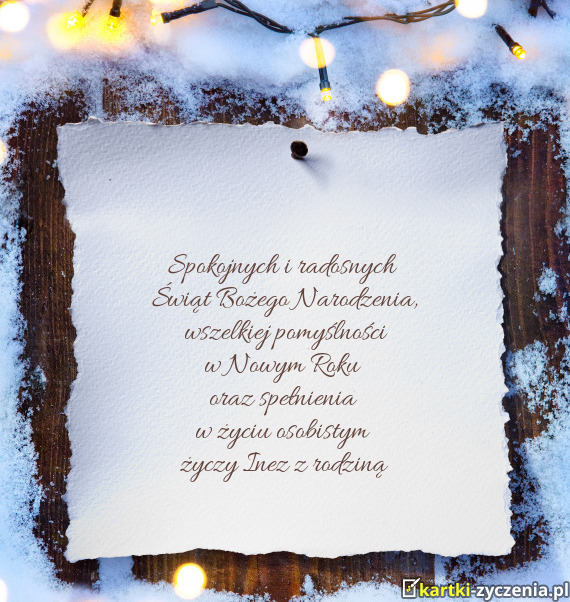 Spokojnych i radosnych
Świąt Bożego Narodzenia,
wszelkiej pomyślności
w Nowym Roku
oraz spełnienia
w życiu osobistym
życzy Inez z rodziną
kartki-zyczenia.pl